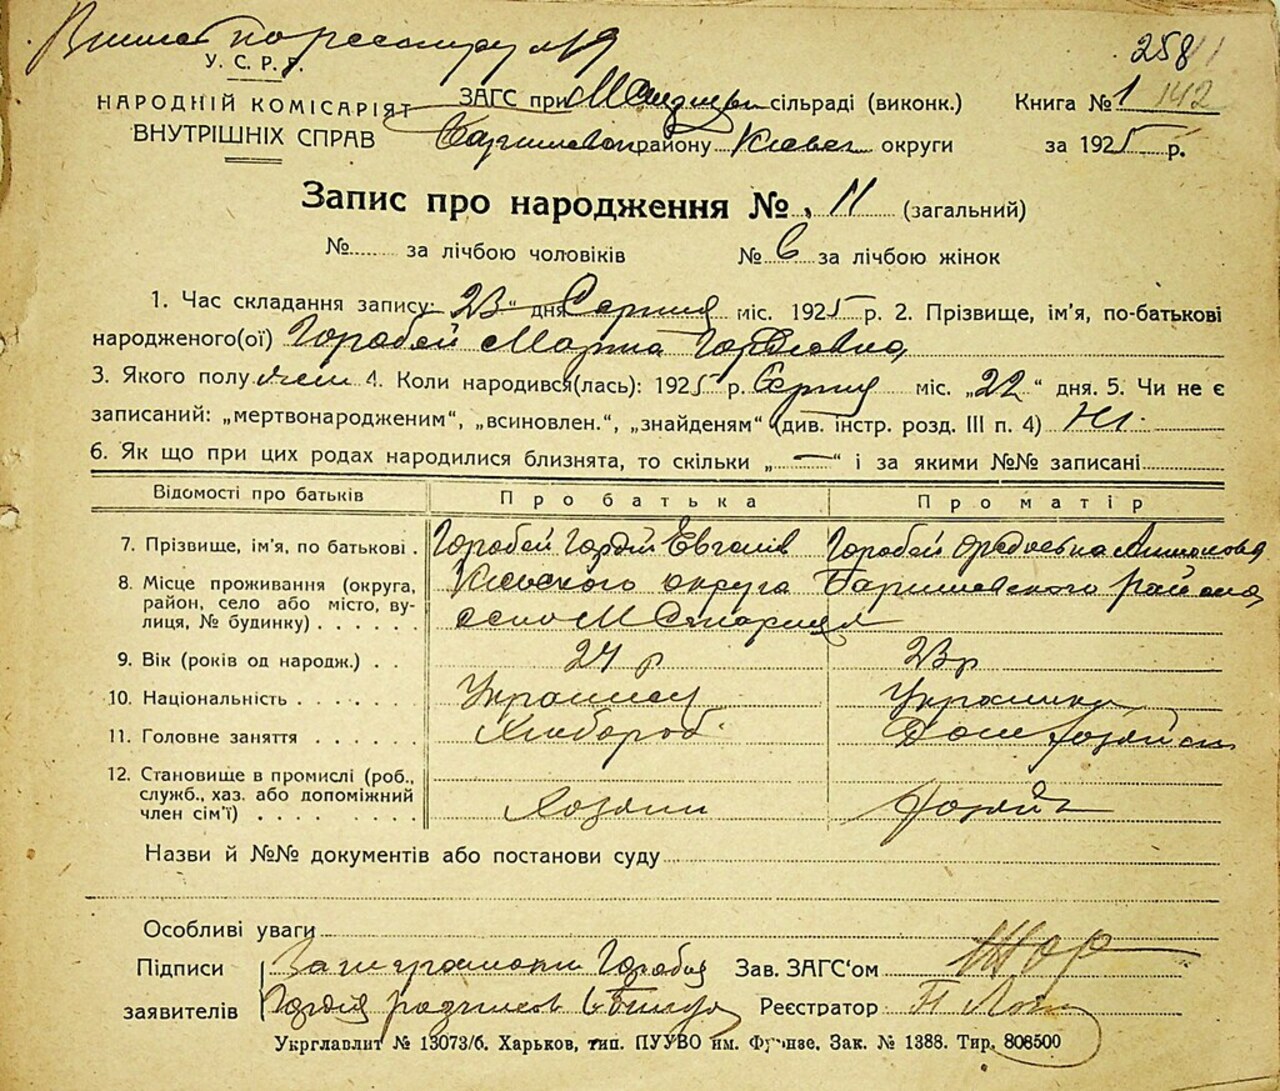 258
У. С. Р. Р.
НАРОДНІЙ КОМІСАРІЯТ
ВНУТРІШНІХ СПРАВ
ЗАГС при сільраді (виконк.)
району Киевск округи
Книга № 1 142
за 1925 р.
Запис про народження № 11 (загальний)
№ за лічбою чоловіків № 6 за лічбою жінок
1. Час складання запису: 23 " дня Серпня міс. 1925 р. 2. Прізвище, ім'я, по-батькові
народженого(ої) Горобей Марта Гордіевна
3. Якого полу жен 4. Коли народився(лась): 1925 р. Серпня міс. „22" дня. 5. Чи не є
записаний: „мертвонародженим", „всиновлен.", „знайденям" (див. інстр. розд. III п. 4) Ні
6. Як що при цих родах народилися близнята, то скільки „ — " і за якими №№ записані
Відомості про батьків Про батька Про матір
7. Прізвище, ім'я, по батькові . Горобей Гордій Евгенів Горобей
8. Місце проживання (округа, Киевского округа Баришевского района
район, село або місто, ву- село М Стариця
лиця, № будинку) . . . . . .
9. Вік (років од народж.) . . 24 р 23 р
10. Національність . . . . . . . Украинец Украинка
11. Головне заняття . . . . . . Хлибороб Дом хозяйст
12. Становище в промислі (роб.,
служб., хаз. або допоміжний
член сім'ї) . . . . . . . . . Хозяин Хозяйк
Назви й №№ документів або постанови суду
Особливі уваги
Підписи За неграмотн Горобця Зав. ЗАГС'ом
заявителів Гордія Реєстратор
Укрглавлит № 13073/б. Харьков, тип. ПУУВО им. Фрунзе. Зак. № 1388. Тир. 808500